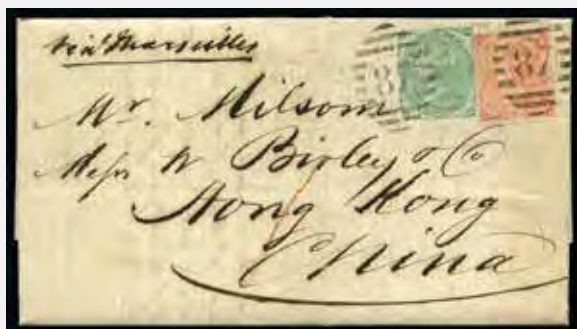 via Marseilles
Mr. Milsom
Messrs W Birley & Co
Hong Kong
China